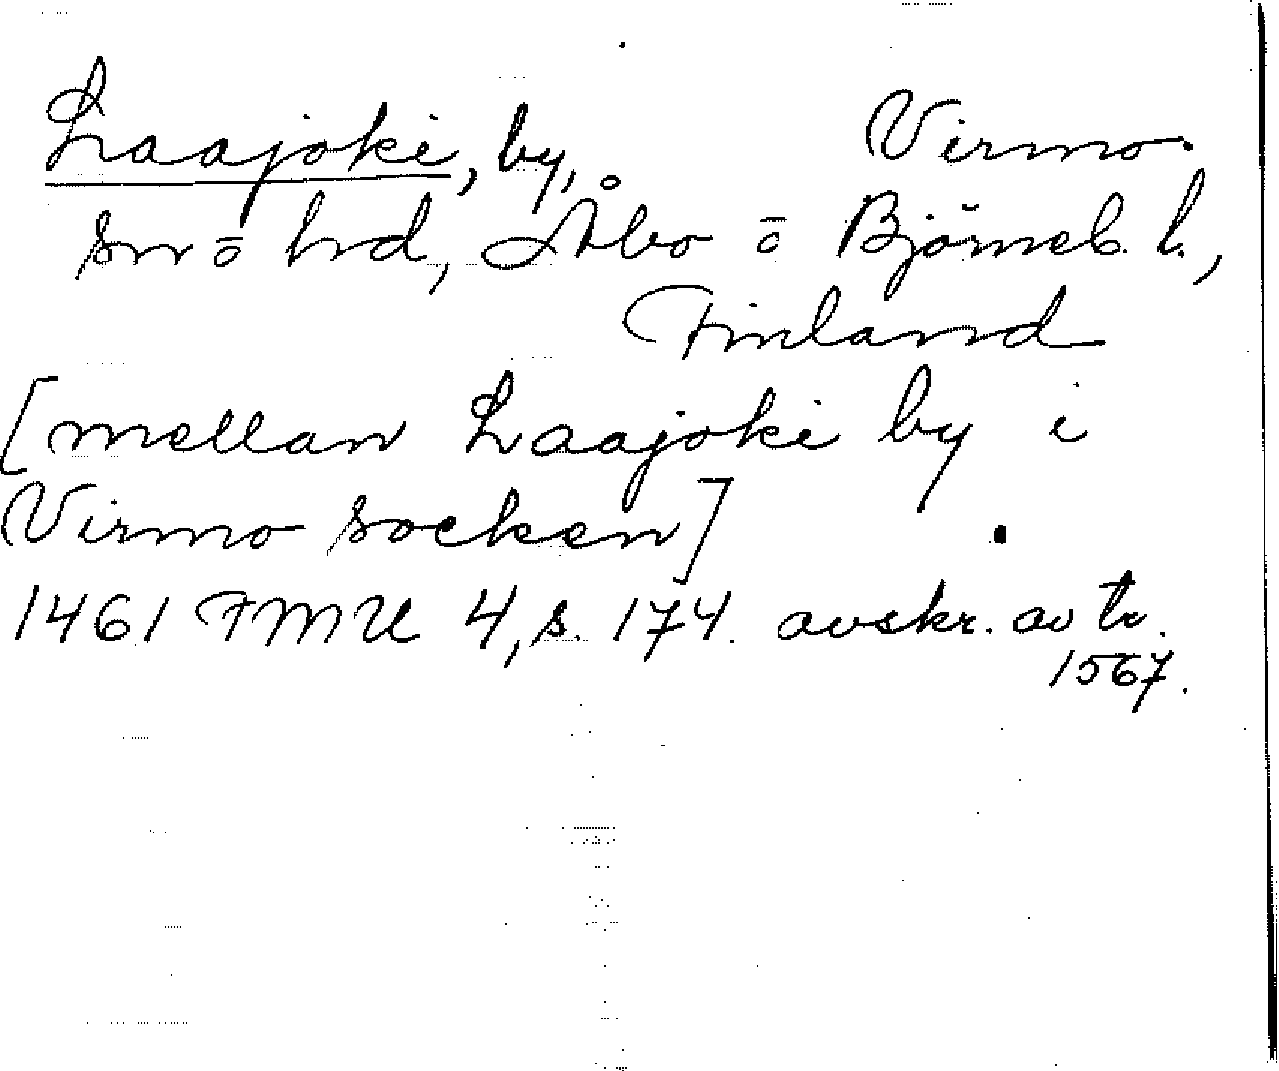 Laajoki, by, Virmo
sn ō hrd, Åbo ō Björneb. l.,
Finland
[mellan Laajoki by i
Virmo socken]
1461 FMU 4, s. 174. avskr. av tr.
1567.